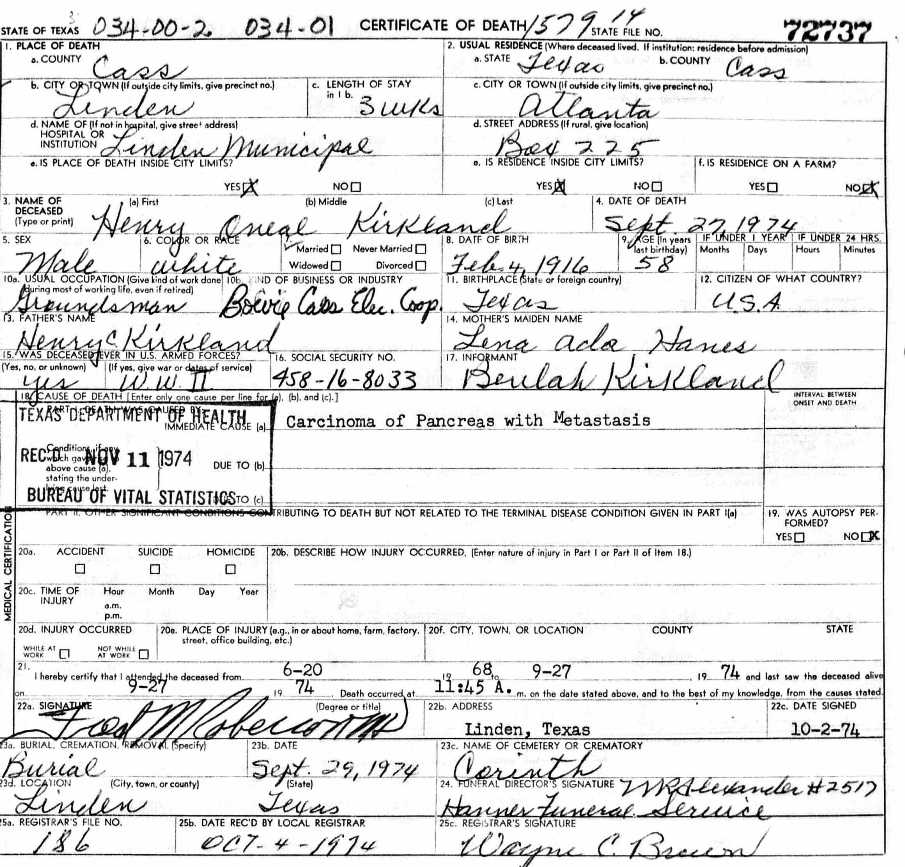 STATE OF TEXAS 034-00-2 034-01 CERTIFICATE OF DEATH 1579 14 STATE FILE NO. 72737
1. PLACE OF DEATH
a. COUNTY Cass
2. USUAL RESIDENCE (Where deceased lived. If institution: residence before admission)
a. STATE Texas b. COUNTY Cass
b. CITY OR TOWN (If outside city limits, give precinct no.) Linden
c. LENGTH OF STAY in 1 b. 3 wks
c. CITY OR TOWN (If outside city limits, give precinct no.) Atlanta
d. NAME OF (If not in hospital, give street address)
HOSPITAL OR
INSTITUTION Linden Municipal
d. STREET ADDRESS (If rural, give location)
Box 225
e. IS PLACE OF DEATH INSIDE CITY LIMITS?
YES X NO
e. IS RESIDENCE INSIDE CITY LIMITS?
YES X NO
f. IS RESIDENCE ON A FARM?
YES NO X
3. NAME OF DECEASED (Type or print)
(a) First (b) Middle (c) Last
Henry Oneal Kirkland
4. DATE OF DEATH
Sept. 27, 1974
5. SEX
Male
6. COLOR OR RACE
white
7. Married Never Married
Widowed Divorced
8. DATE OF BIRTH
Feb. 4, 1916
9. AGE (In years last birthday)
58
IF UNDER 1 YEAR
Months Days
IF UNDER 24 HRS.
Hours Minutes
10a. USUAL OCCUPATION (Give kind of work done during most of working life, even if retired)
Groundsman
10b. KIND OF BUSINESS OR INDUSTRY
Bowie Cass Elec. Coop.
11. BIRTHPLACE (State or foreign country)
Texas
12. CITIZEN OF WHAT COUNTRY?
U.S.A
13. FATHER'S NAME
Henry C Kirkland
14. MOTHER'S MAIDEN NAME
Lena Ada Hanes
15. WAS DECEASED EVER IN U.S. ARMED FORCES?
(Yes, no, or unknown) (If yes, give war or dates of service)
yes W.W. II
16. SOCIAL SECURITY NO.
458-16-8033
17. INFORMANT
Beulah Kirkland
18. CAUSE OF DEATH [Enter only one cause per line for (a), (b), and (c).]
INTERVAL BETWEEN
ONSET AND DEATH
PART I. DEATH WAS CAUSED BY:
TEXAS DEPARTMENT OF HEALTH
IMMEDIATE CAUSE (a) Carcinoma of Pancreas with Metastasis
Conditions, if any, which gave above cause (a), stating the underlying cause last.
REC'D NOV 11 1974
DUE TO (b)
BUREAU OF VITAL STATISTICS
DUE TO (c)
PART II. OTHER SIGNIFICANT CONDITIONS CONTRIBUTING TO DEATH BUT NOT RELATED TO THE TERMINAL DISEASE CONDITION GIVEN IN PART I(a)
19. WAS AUTOPSY PERFORMED?
YES NO X
MEDICAL CERTIFICATION
20a. ACCIDENT SUICIDE HOMICIDE
20b. DESCRIBE HOW INJURY OCCURRED. (Enter nature of injury in Part I or Part II of Item 18.)
20c. TIME OF INJURY
Hour Month Day Year
a.m.
p.m.
20d. INJURY OCCURRED
WHILE AT WORK NOT WHILE AT WORK
20e. PLACE OF INJURY (e.g., in or about home, farm, factory, street, office building, etc.)
20f. CITY, TOWN, OR LOCATION COUNTY STATE
21. I hereby certify that I attended the deceased from 6-20 19 68 to 9-27 19 74 and last saw the deceased alive
on 9-27 19 74 Death occurred at 11:45 A. m. on the date stated above, and to the best of my knowledge, from the causes stated.
22a. SIGNATURE (Degree or title)
22b. ADDRESS
Linden, Texas
22c. DATE SIGNED
10-2-74
23a. BURIAL, CREMATION, REMOVAL (Specify)
Burial
23b. DATE
Sept. 29, 1974
23c. NAME OF CEMETERY OR CREMATORY
Corinth
23d. LOCATION (City, town, or county) (State)
Linden Texas
24. FUNERAL DIRECTOR'S SIGNATURE Alexander #2517
Hanner Funeral Service
25a. REGISTRAR'S FILE NO.
186
25b. DATE REC'D BY LOCAL REGISTRAR
OCT-4-1974
25c. REGISTRAR'S SIGNATURE
Wayne C. Brown